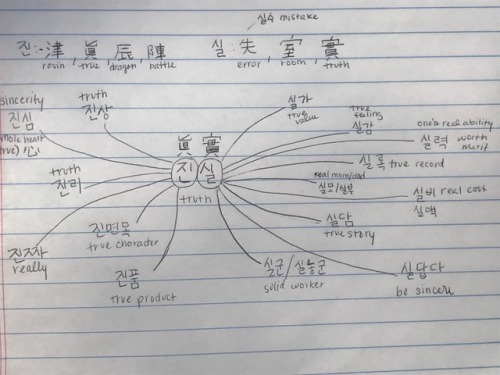 실수 mistake
진:- 津, 眞, 辰, 陣 실: 失, 室, 實
resin true dragon battle error room truth
sincerity
진심
whole heart
true) 心
truth
진상
실가
true value
true feeling
실감
one's real ability
실력 worth merit
眞 實
진 실
truth
truth
진리
실록 true record
real mom/dad
실모/실부
실비 real cost
실액
진면목
true character
실담
true story
진짜
really
진품
true product
실군/실농군
solid worker
실답다
be sincere